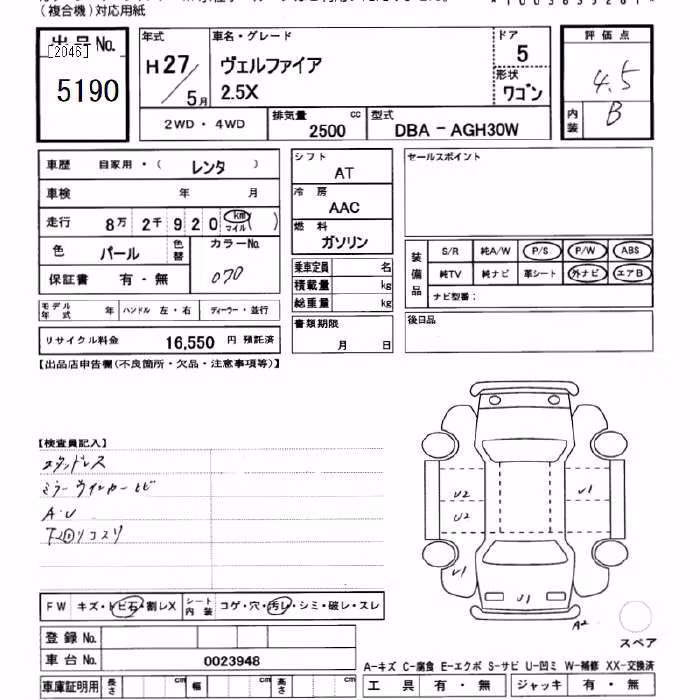 (複合機)対応用紙
出品No.
[2046]
5190
年式
H27/5月
車名・グレード
ヴェルファイア
2.5X
ドア
5
形状
ワゴン
評価点
4.5
内装
B
2WD・4WD
排気量 cc
2500
型式
DBA-AGH30W
車歴 自家用・( レンタ )
車検 年 月
走行 8万2千920 km マイル ( )
色 パール 色替 カラーNo. 070
保証書 有・無
モデル年式 年 ハンドル 左・右 ディーラー・並行
リサイクル料金 16,550 円 預託済
シフト
AT
冷房
AAC
燃料
ガソリン
乗車定員 名
積載量 kg
総重量 kg
書類期限
月 日
セールスポイント
装備品
S/R 純A/W P/S P/W ABS
純TV 純ナビ 革シート 外ナビ エアB
ナビ型番:
後日品
【出品店申告欄(不良箇所・欠品・注意事項等)】
【検査員記入】
スタッドレス
ミラーウインカーヒビ
A・U
下回リコスリ
U2
U2
U1
U1
U1
A2
スペア
FW キズ・トビ石・割レX
シート内装 コゲ・穴・汚レ・シミ・破レ・スレ
登録No.
車台No. 0023948
車庫証明用 長さ cm 幅 cm 高さ cm
A-キズ C-腐食 E-エクボ S-サビ U-凹ミ W-補修 XX-交換済
工具 有・無 ジャッキ 有・無